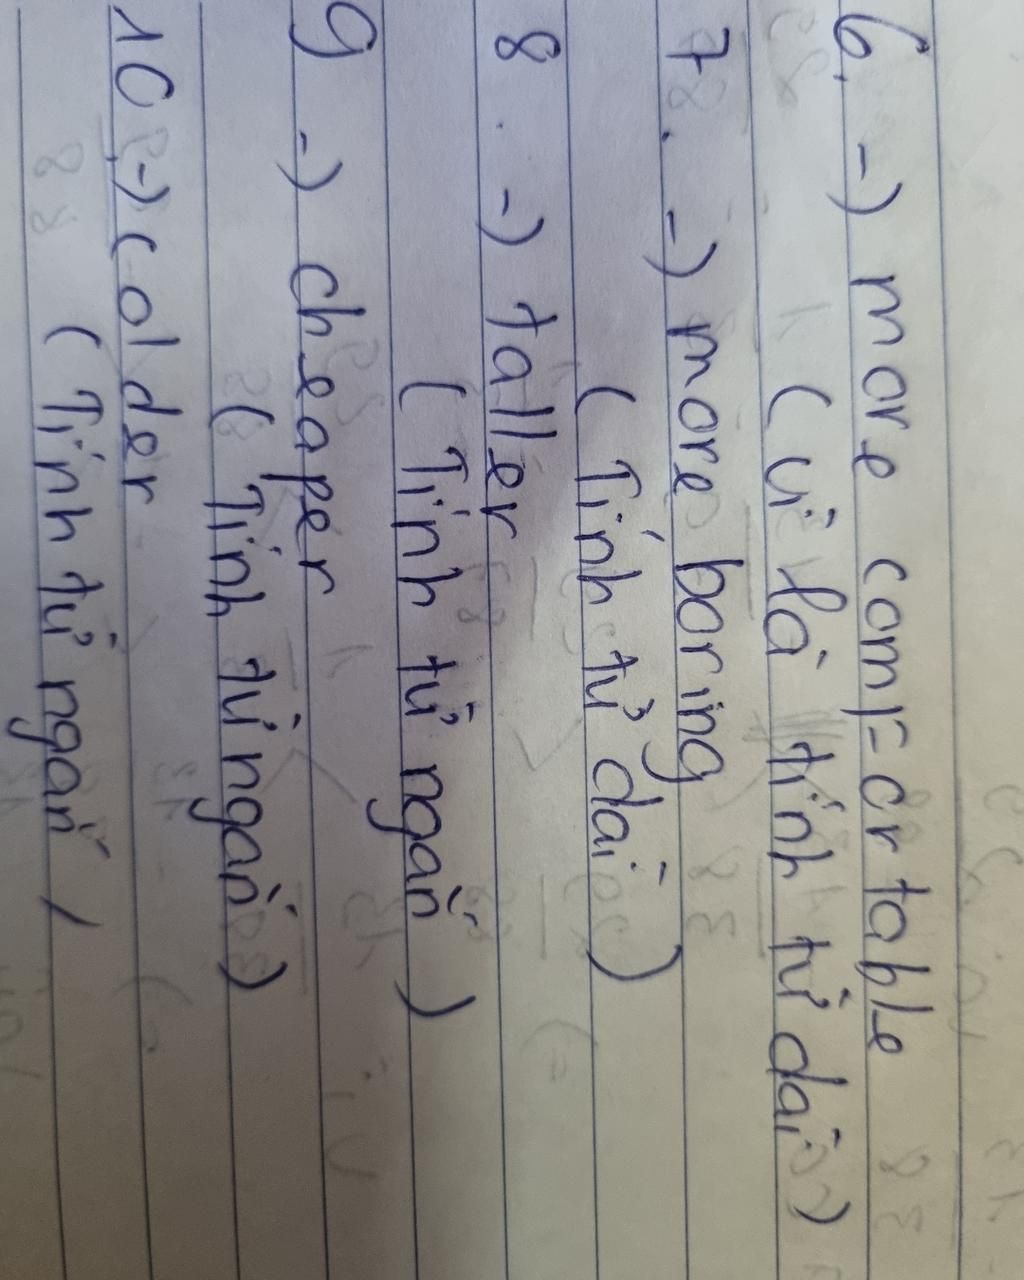 6. -) more comf-ortable
( vì là tính từ dài)
7. -) more boring
( Tính từ dài )
8. -) taller
( Tính từ ngắn )
9 -) cheaper
( Tính từ ngắn )
10, -) colder
( Tính từ ngắn )